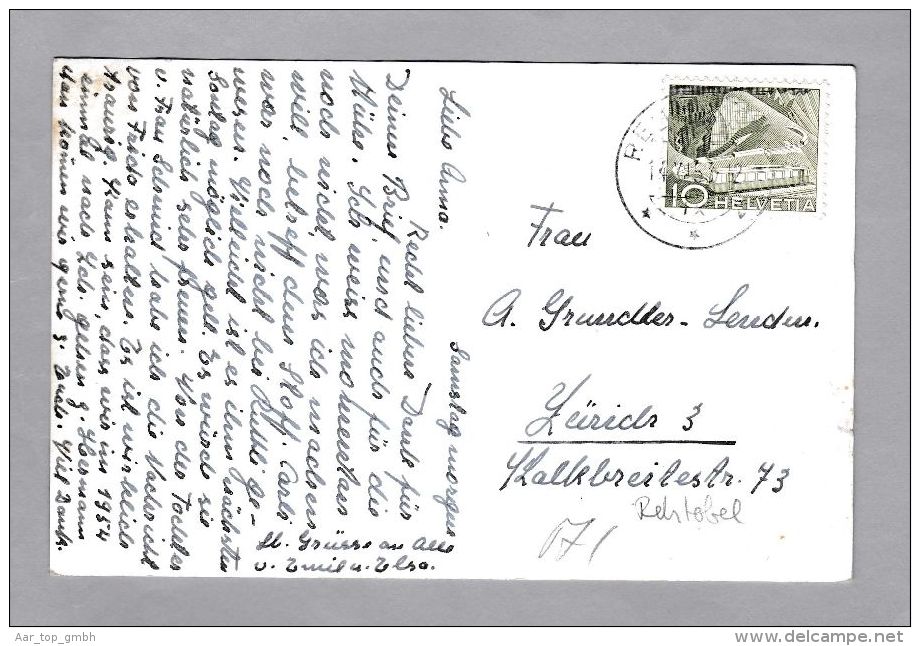 Samstag morgen
Liebe Anna.
Recht lieben Dank für
Deinen Brief und auch für die
Mühe. Ich weiss momentan
noch nicht was ich machen
will, betreff dem Stoff. Carli
war noch nicht bei Rütti ge-
wesen. Vielleicht ist es ihm nächsten
Sontag möglich gell. Es würde sie
natürlich sehr freuen. Von der Tochter
v. Frau Schmid habe ich die Nachricht
von Frido erhalten. Es ist wirklich
traurig. Kann sein, dass wir im 1954
einmal nach Zch. gehen z. Hermann
dan komen wir gerne z. Euch. Viel Dank.
Hl. Grüsse an Alle
v. Emil u. Elsa.
10 HELVETIA
Frau
A. Grundler-Lenden.
Zürich 3
Kalkbreitestr. 73
Rehtobel
Aar_top_gmbh
www.delcampe.net